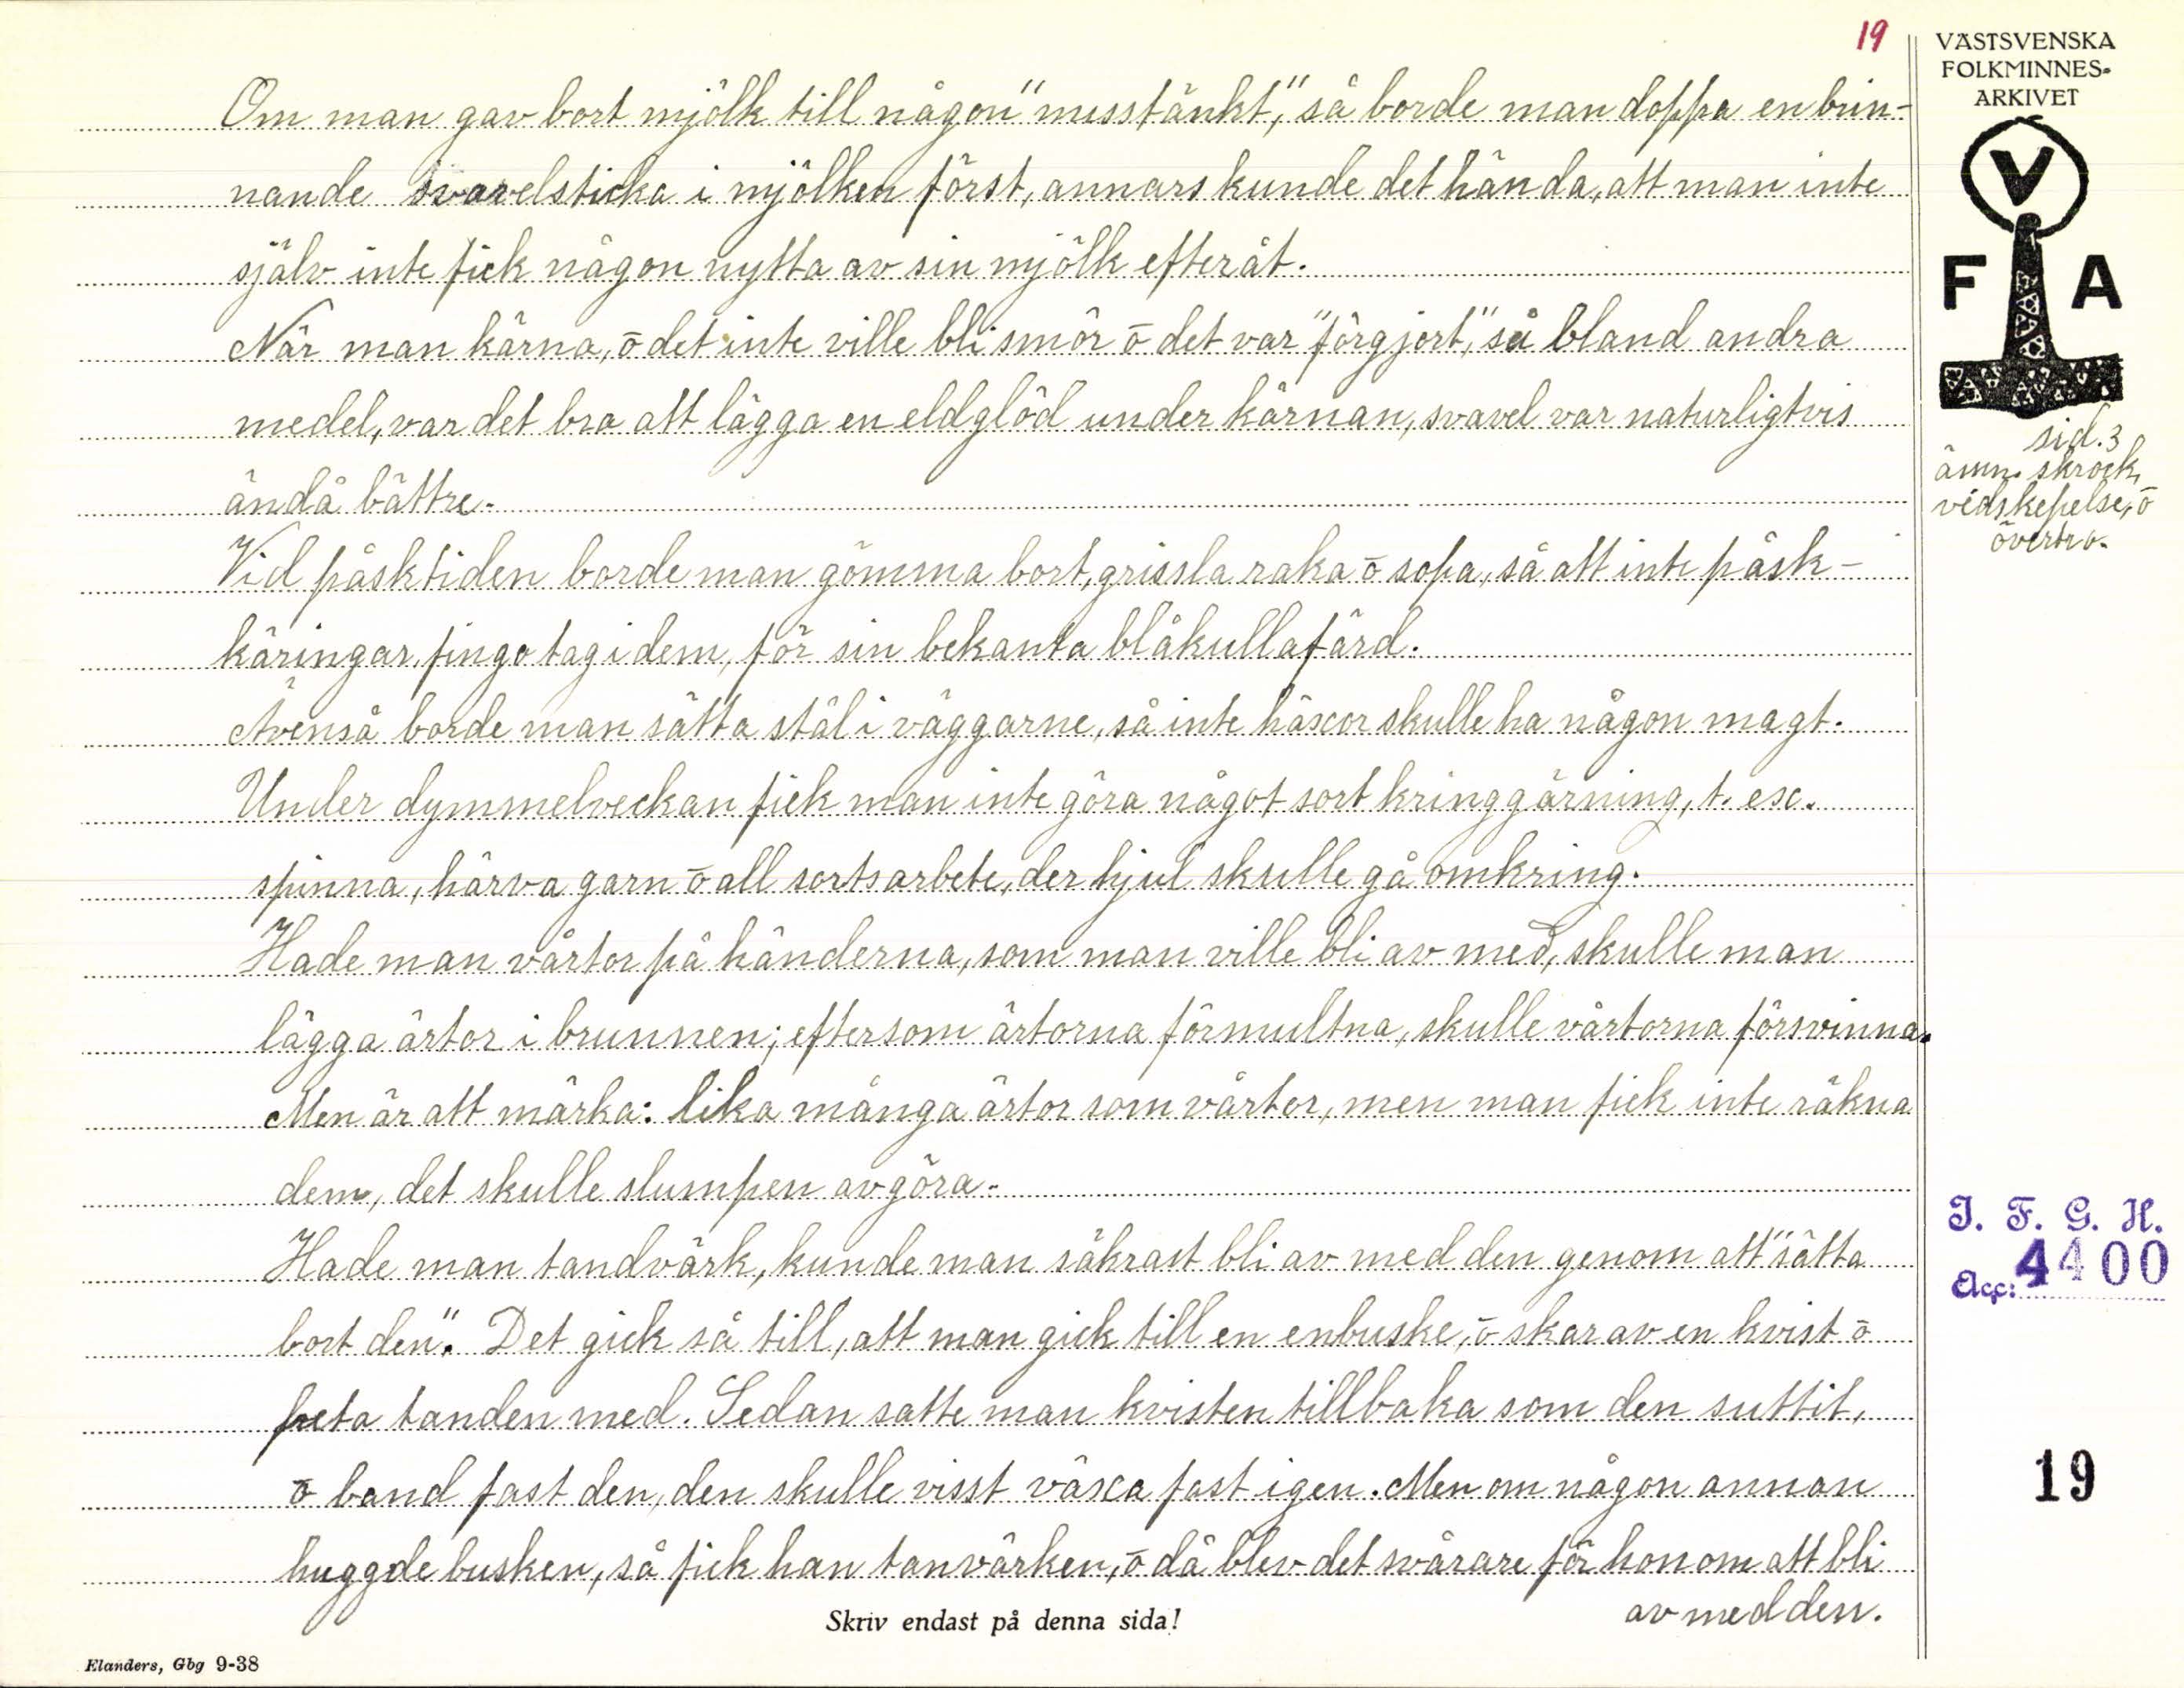 19
Om man gav bort mjölk till någon "misstänkt," så borde man doppa en brin-
nande svavelsticka i mjölken först, annars kunde det hända, att man inte
själv inte fick någon nytta av sin mjölk efteråt.
När man kärna, ō det inte ville bli smör ō det var "förgjort," så bland andra
medel, var det bra att lägga en eldglöd under kärnan, svavel var naturligtvis
ändå bättre.
Vid påsktiden borde man gömma bort, grissla raka ō sopa, så att inte påsk-
käringar fingo tag i dem, för sin bekanta blåkullafärd.
Ävenså borde man sätta stål i väggarne, så inte häxor skulle ha någon magt.
Under dymmelveckan fick man inte göra något sort kringgärning, t. ex.
spinna, härva garn ō all sorts arbete, der hjul skulle gå omkring.
Hade man vårtor på händerna, som man ville bli av med, skulle man
lägga ärtor i brunnen; eftersom ärtorna förmultna, skulle vårtorna försvinna.
Men är att märka: lika många ärtor som vårtor, men man fick inte räkna
dem, det skulle slumpen avgöra.
Hade man tandvärk, kunde man säkrast bli av med den genom att "sätta
bort den". Det gick så till, att man gick till en enbuske, ō skar av en kvist ō
peta tanden med. Sedan satte man kvisten tillbaka som den suttit,
ō band fast den, den skulle visst växa fast igen. Men om någon annan
huggde busken, så fick han tanvärken, ō då blev det svårare för honom att bli
av med den.
Skriv endast på denna sida!
Elanders, Gbg 9-38
VÄSTSVENSKA
FOLKMINNES-
ARKIVET
V
F A
sid. 3
ämn. skrock,
vidskepelse, ō
övertro.
I. F. G. H.
Acc: 4400
19